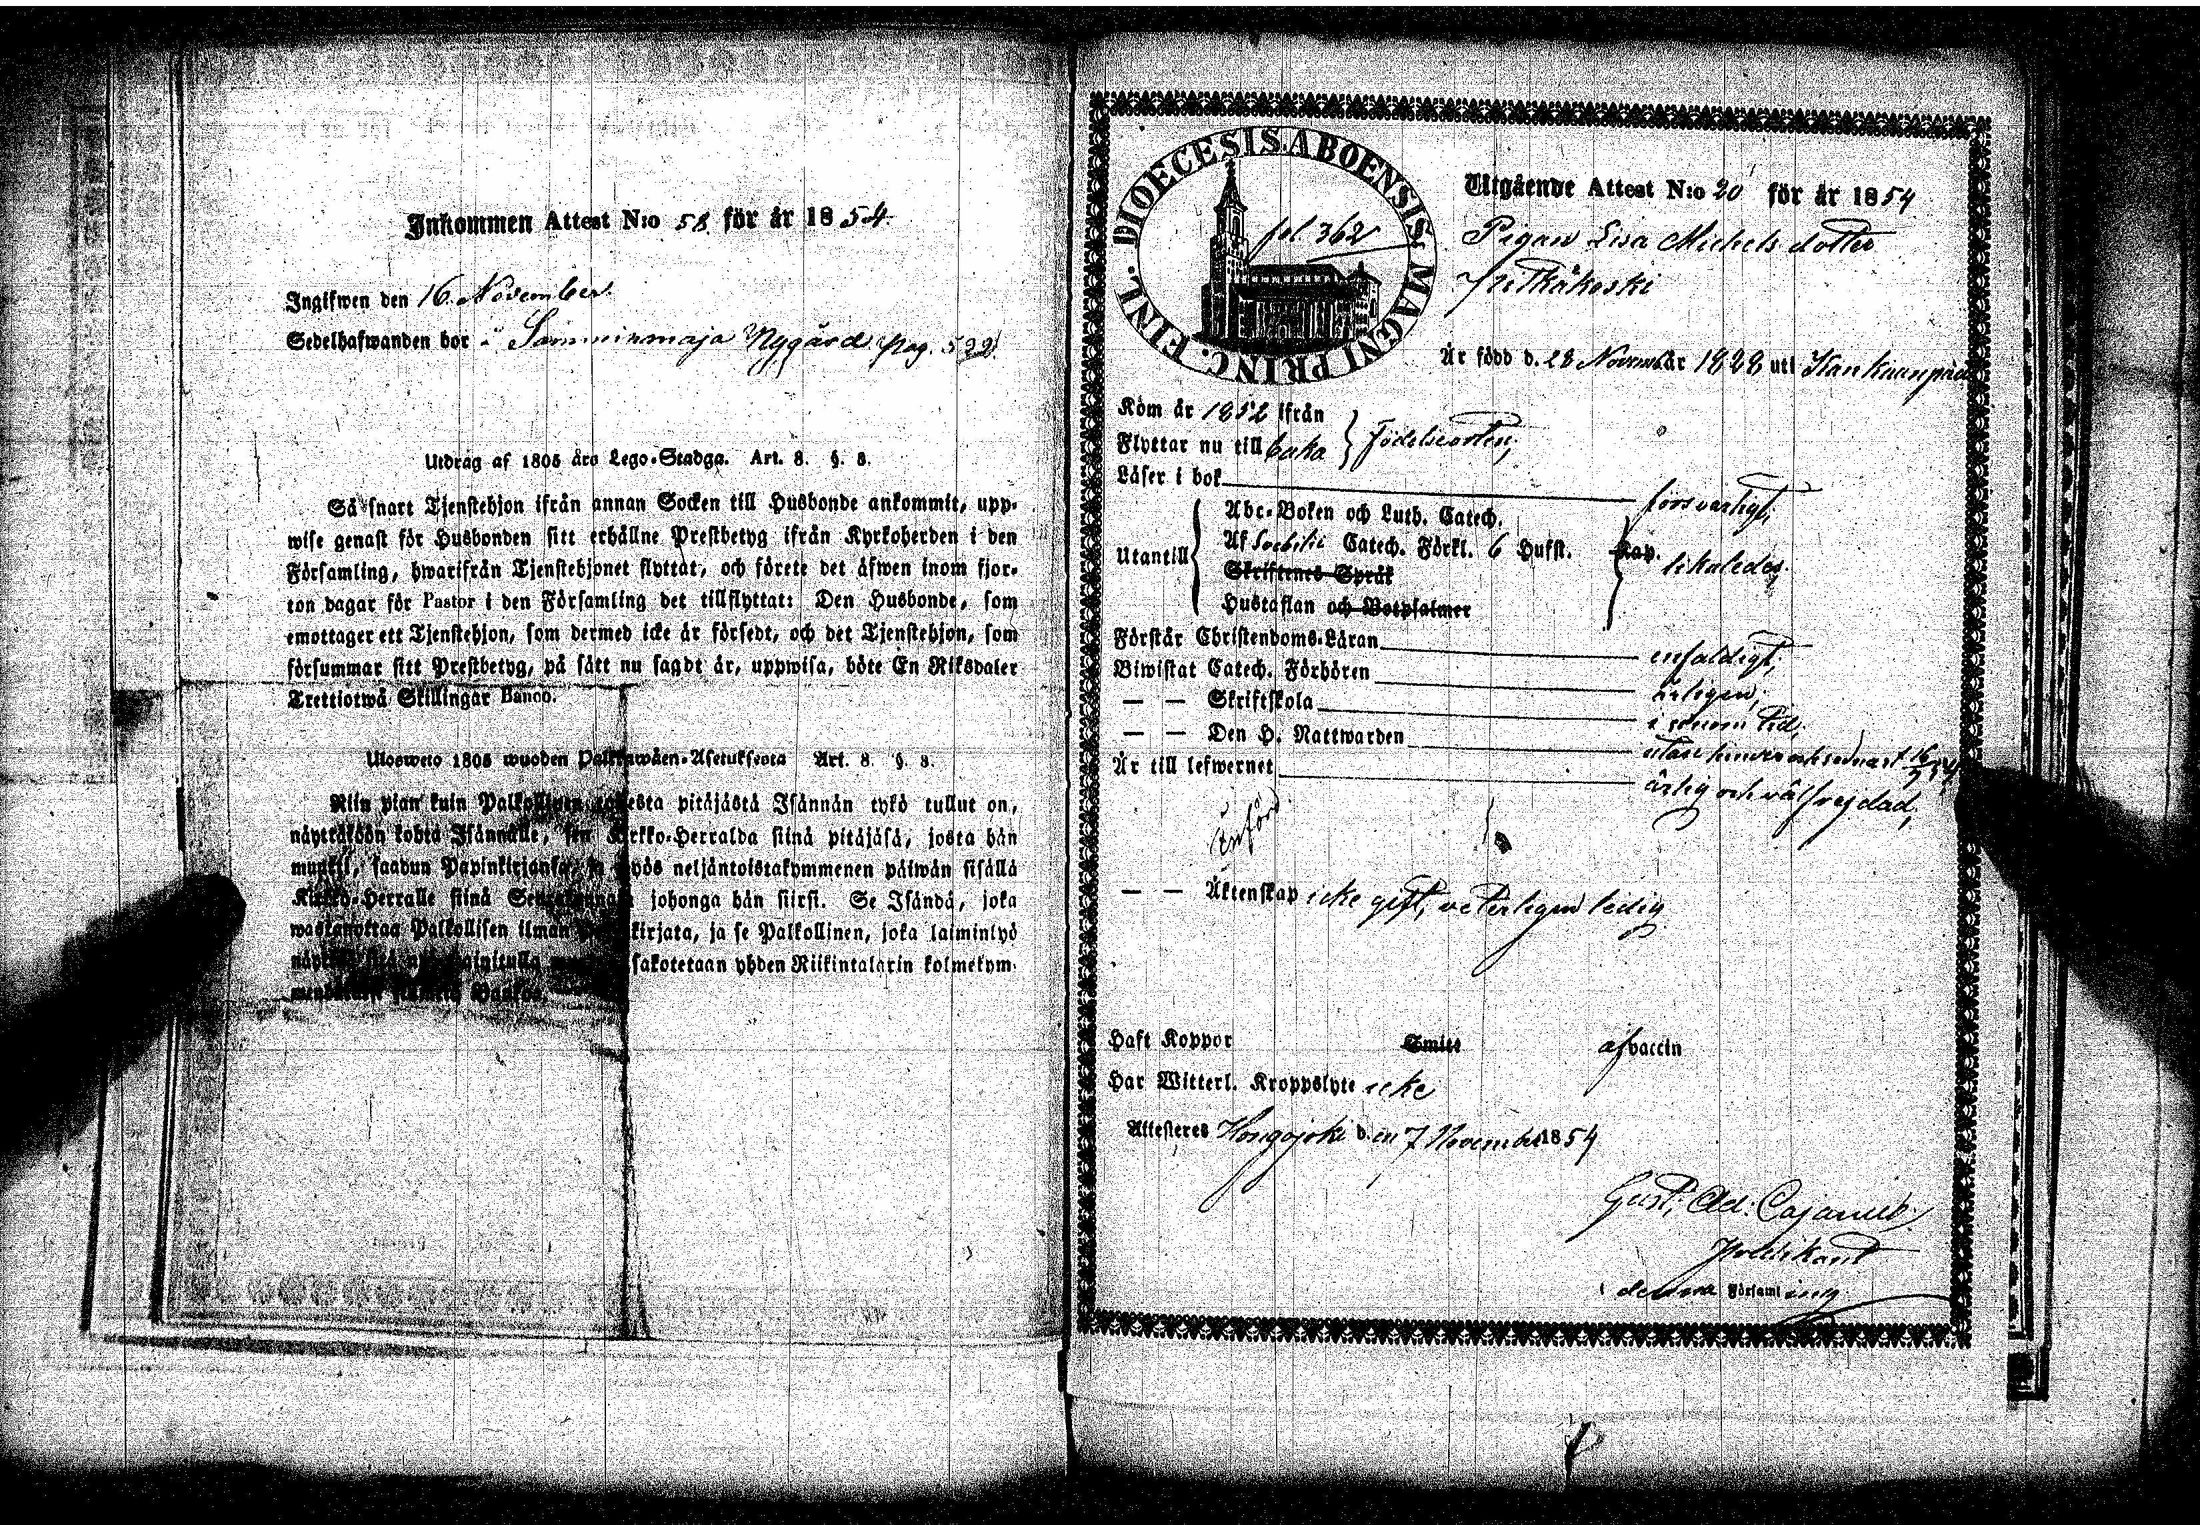 Inkommen Attest N:o 58 för år 1854
Ingifwen den 16 November
Sedelhafwanden bor å Samminmaja Nygård pag. 522
Utdrag af 1805 års Lego-Stadga. Art. 8. §. 8.
Så snart Tjenstehjon ifrån annan Socken till Husbonde ankommit, upp-
wise genast för Husbonden sitt erhållne Prestbetyg ifrån Kyrkoherden i den
Församling, hwarifrån Tjenstehjonet flyttat, och förete det äfwen inom fjor-
ton dagar för Pastor i den Församling det tillflyttat: Den Husbonde, som
emottager ett Tjenstehjon, som dermed icke är försedt, och det Tjenstehjon, som
försummar sitt Prestbetyg, på sätt nu sagdt är, uppwisa, böte En Riksdaler
Trettiotwå Skillingar Banco.
Ulosweto 1805 wuoden Palkkawäen-Asetuksesta Art. 8. §. 8.
Niin pian kuin Palkollinen toisesta pitäjästä Isännän tykö tullut on,
näyttäköön kohta Isännälle, sen Kirkko-Herralda siinä pitäjäsä, josta hän
muutti, saadun Papinkirjansa, ja myös neljäntoistakymmenen päiwän sisällä
Kirkko-Herralle siinä Seurakunnasa johonga hän siirsi. Se Isändä, joka
wastanottaa Palkollisen ilman kirjata, ja se Palkollinen, joka laiminlyö
sakotetaan yhden Riikintalarin kolmekym-
Bankos.
DIOECESIS ABOENSIS MAGNI PRINC. FINL.
fol 362
Utgående Attest N:o 20 för år 1854
Pigan Lisa Michelsdotter
Är född d. 28 November 1828 uti Kankaanpää
Kom år 1852 ifrån
Flyttar nu till baka } Födelseorten;
Läser i bok försvarligt;
Utantill { Abc-Boken och Luth. Catech.
Af Svebilii Catech. Förkl. 6 Hufst. Kap. } likaledes.
Skriftenes Språk
Hustaflan och Botpsalmer
Förstår Christendoms-Läran enfaldigt;
Biwistat Catech. Förhören årligen;
— — Skriftskola i sinom tid;
— — Den H. Nattwarden utan hinder och sednast 16/7 54
Är till lefwernet ärlig och välfrejdad;
Införd
— — Äktenskap icke gift, veterligen ledig
Haft Koppor Smitt af vaccin
Har Witterl. Kroppslyte icke
Attesteres Hongojoki den 7 November 1854
Gust. Ad. Cajanus
Predikant
i denna Församling